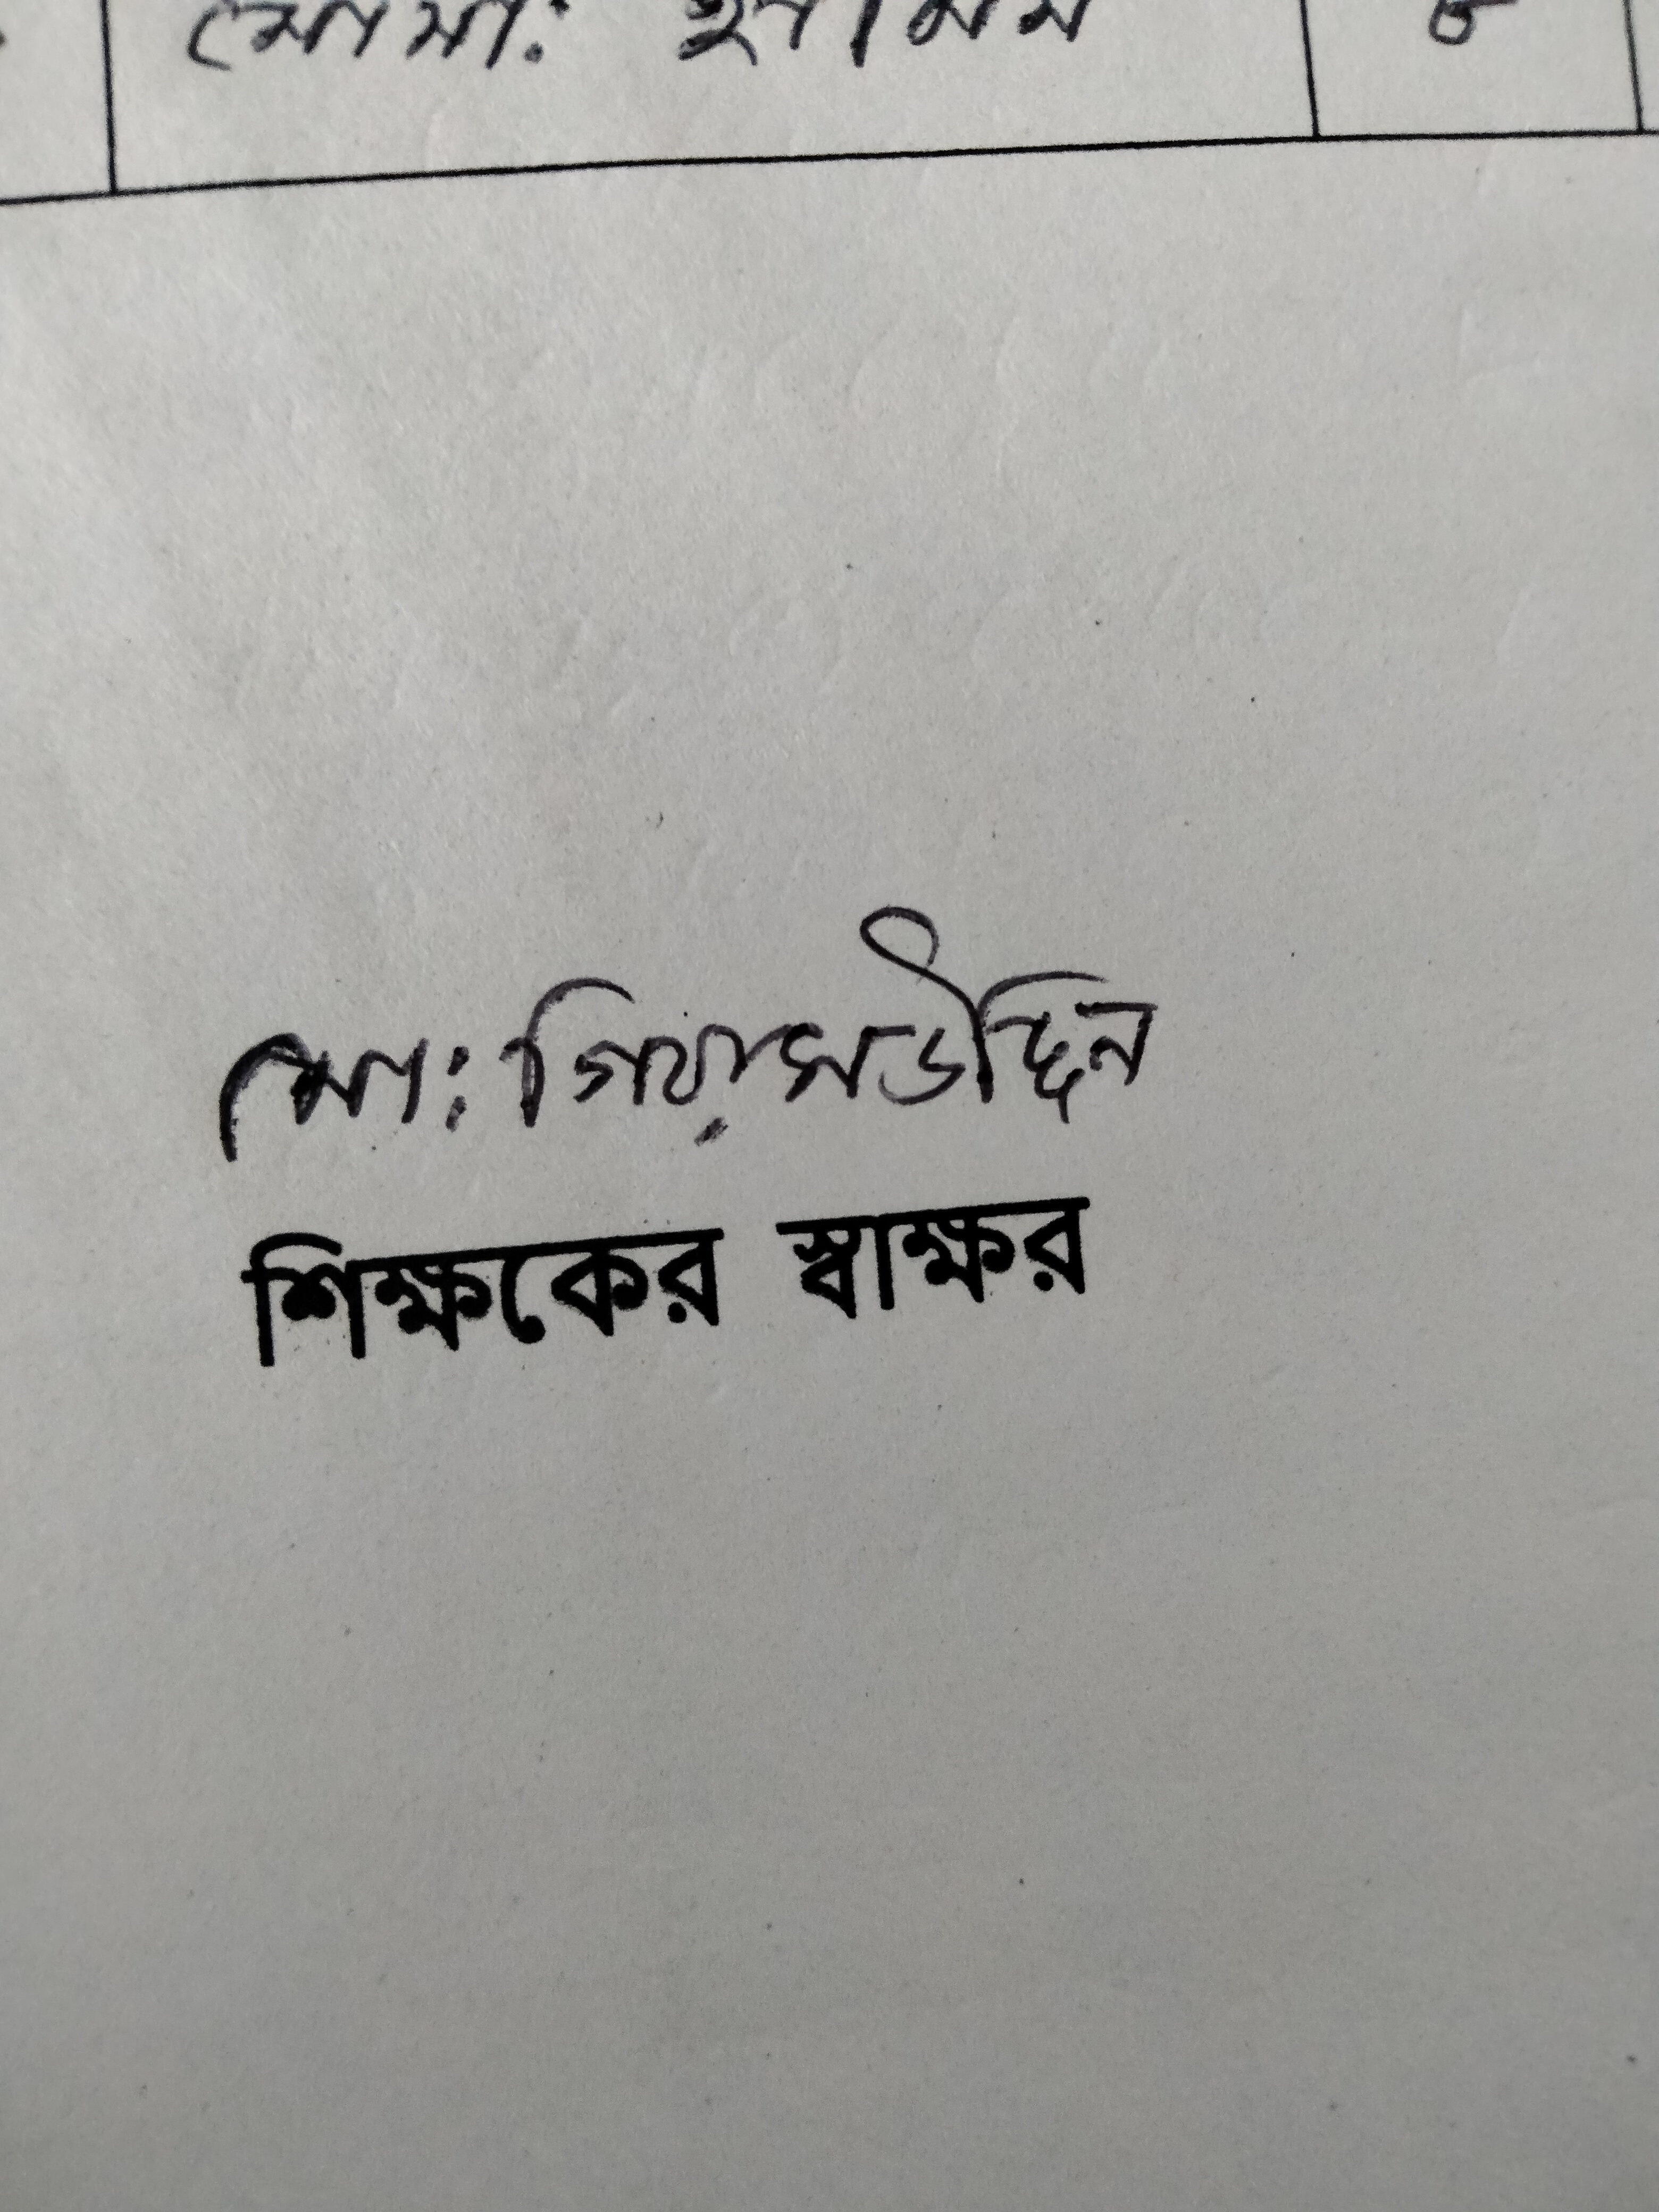 মোসা:
মো: গিয়াসউদ্দিন
শিক্ষকের স্বাক্ষর